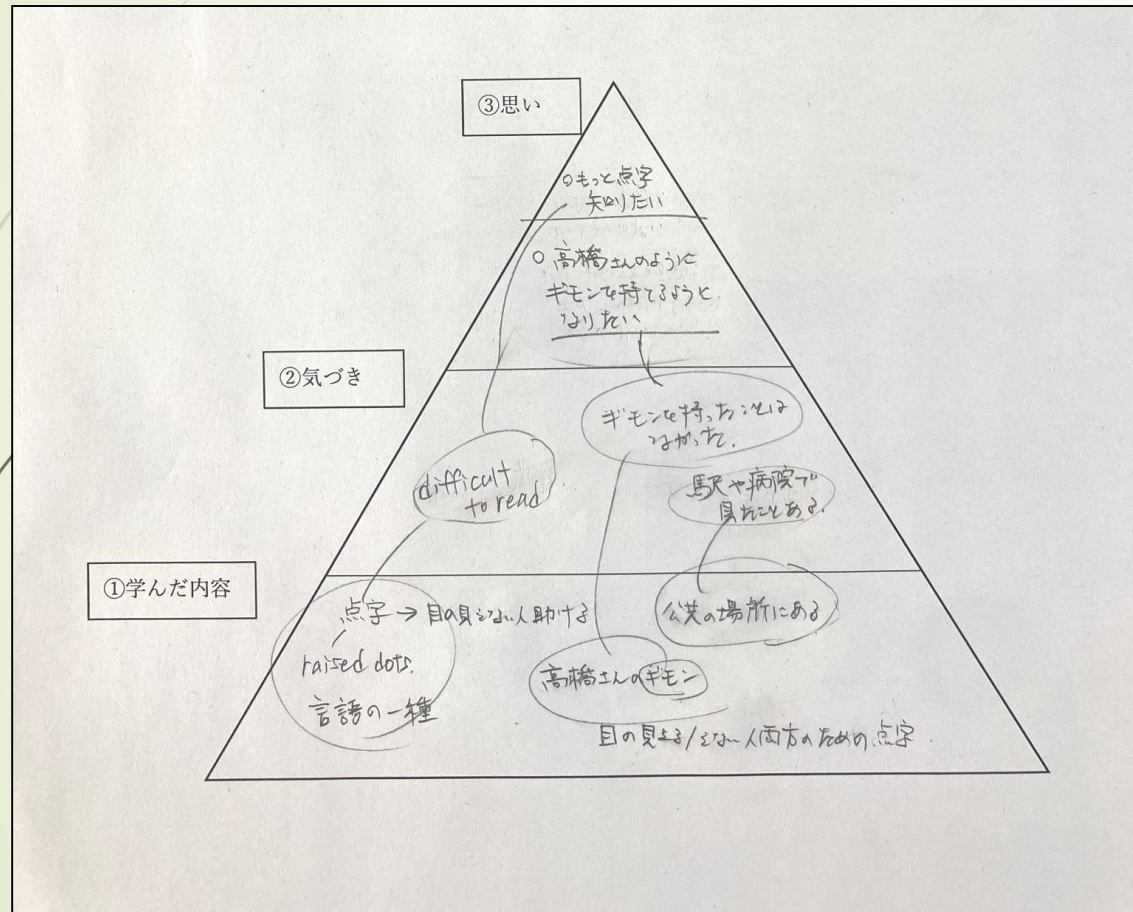 ③思い
○もっと点字
知りたい
○高橋さんのように
ギモンを持てるように
なりたい
②気づき
ギモンを持ったことは
なかった.
difficult
to read
駅や病院で
見たことある.
①学んだ内容
点字→目の見えない人助ける
raised dots.
言語の一種
公共の場所にある
高橋さんのギモン
目の見える/えない人両方のための点字